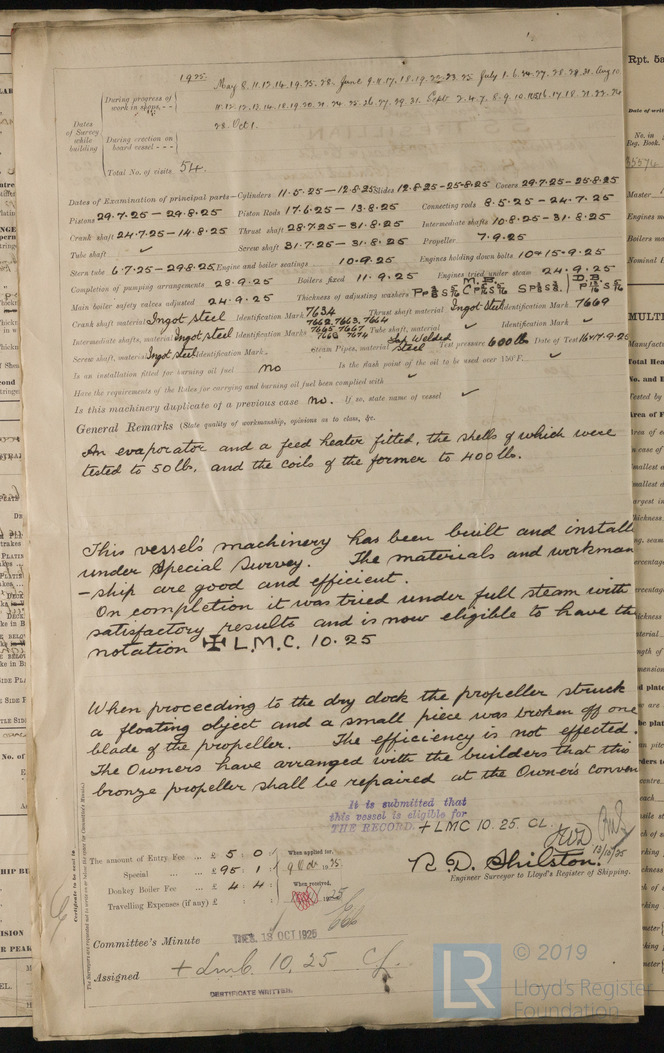 1925
May 8.11.12.14.19.25.28. June 9.11.17.18.19.22.23.25. July 1.6.24.27.28.29.31. Aug 10
11.12.13.14.18.19.20.21.24.25.26.27.29.31. Sept 2.4.7.8.9.10.11.15.16.17.18.21.22.24
28. Oct 1.
Dates of Survey while building
During progress of work in shops - -
During erection on board vessel - - -
Total No. of visits 54.
Dates of Examination of principal parts—Cylinders 11.5.25—12.8.25 Slides 12.8.25—25.8.25 Covers 29.7.25—25.8.25
Pistons 29.7.25—29.8.25 Piston Rods 17.6.25—13.8.25 Connecting rods 8.5.25—24.7.25
Crank shaft 24.7.25—14.8.25 Thrust shaft 28.7.25—31.8.25 Intermediate shafts 10.8.25—31.8.25
Tube shaft ✓ Screw shaft 31.7.25—31.8.25 Propeller 7.9.25
Stern tube 6.7.25—29.8.25 Engine and boiler seatings 10.9.25 Engines holding down bolts 10+15.9.25
Completion of pumping arrangements 28.9.25 Boilers fixed 11.9.25 Engines tried under steam 24.9.25
Main boiler safety valves adjusted 24.9.25 Thickness of adjusting washers
Crank shaft material Ingot steel Identification Mark 7634 Thrust shaft material Ingot steel Identification Mark 7669
Intermediate shafts, material Ingot steel Identification Marks 7662, 7663, 7664 7665 7667 7668 7670 Tube shaft, material ✓ Identification Mark ✓
Screw shaft, material Ingot steel Identification Mark Steam Pipes, material Lap Welded Steel Test pressure 600 lb Date of Test 16+17.9.25
Is an installation fitted for burning oil fuel no Is the flash point of the oil to be used over 150°F. ✓
Have the requirements of the Rules for carrying and burning oil fuel been complied with ✓
Is this machinery duplicate of a previous case no. If so, state name of vessel ✓
General Remarks (State quality of workmanship, opinions as to class, &c.
An evaporator and a feed heater fitted, the shells of which were
tested to 50 lb, and the coils of the former to 400 lb.
This vessel's machinery has been built and install
under Special Survey. The materials and workman
-ship are good and efficient.
On completion it was tried under full steam with
satisfactory results and is now eligible to have the
notation ✠ L.M.C. 10.25
When proceeding to the dry dock the propeller struck
a floating object and a small piece was broken off one
blade of the propeller. The efficiency is not effected.
The Owners have arranged with the builders that this
bronze propeller shall be repaired at the Owner's conven
It is submitted that
this vessel is eligible for
THE RECORD. + LMC 10.25. CL.
13/10/25
The amount of Entry Fee ... £ 5 : 0 : When applied for,
Special ... £ 95 : 1 : 9 Oct 1925
Donkey Boiler Fee ... £ 4 : 4 : When received,
Travelling Expenses (if any) £ : :
R. D. Shilston.
Engineer Surveyor to Lloyd's Register of Shipping.
Committee's Minute TUES. 13 OCT 1925
Assigned + L.M.C. 10.25 CL.
CERTIFICATE WRITTEN.
LR © 2019
Lloyd's Register
Foundation
Rpt. 5a